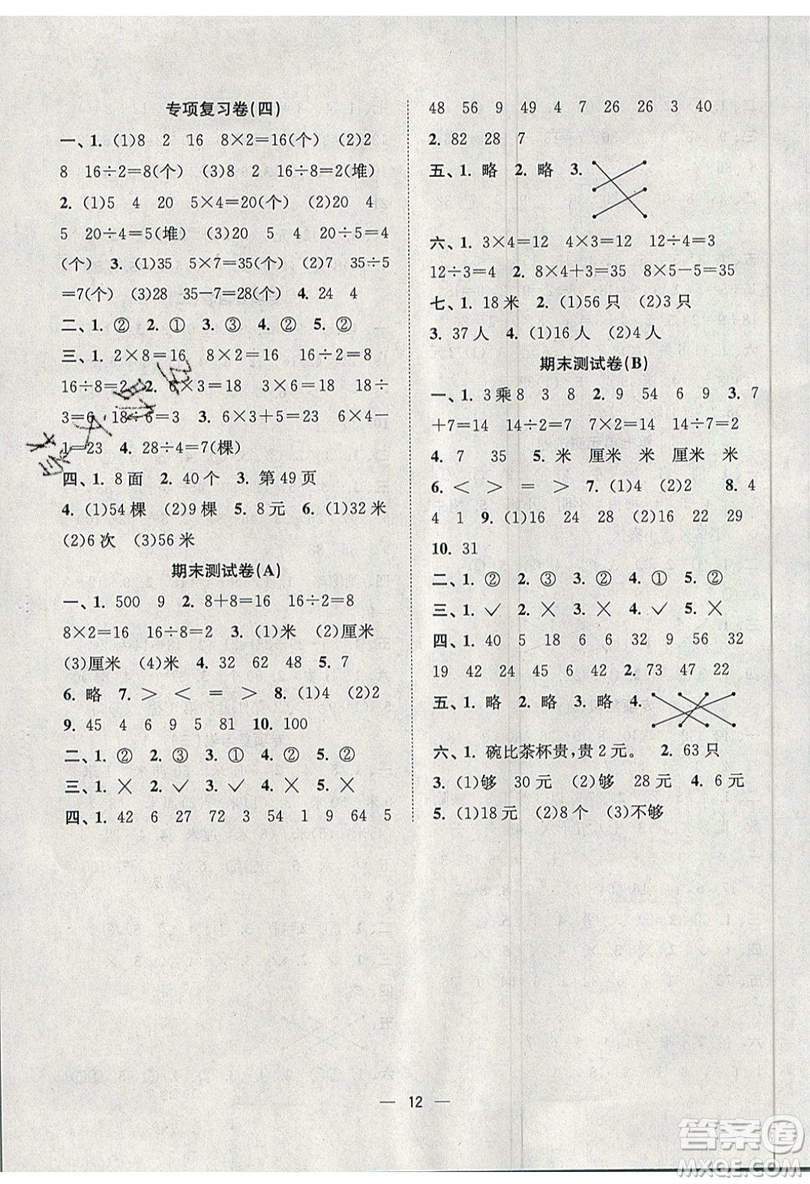 专项复习卷(四)
一、1. (1)8 2 16 8×2=16(个) (2)2
8 16÷2=8(个) (3)16 16÷8=2(堆)
2. (1)5 4 20 5×4=20(个) (2)20 4
5 20÷4=5(堆) (3)20 5 4 20÷5=4
(个) 3. (1)35 5×7=35(个) (2)35 35÷5
=7(个) (3)28 35-7=28(个) 4. 24 4
二、1. ② 2. ① 3. ② 4. ③ 5. ②
三、1. 2×8=16 8×2=16 16÷2=8
16÷8=2 2. 6×3=18 3×6=18 18÷
3=6 18÷6=3 3. 6×3+5=23 6×4-
1=23 4. 28÷4=7(棵)
四、1. 8面 2. 40个 3. 第49页
4. (1)54棵 (2)9棵 5. 8元 6. (1)32米
(2)6次 (3)56米
期末测试卷(A)
一、1. 500 9 2. 8+8=16 16÷2=8
8×2=16 16÷8=2 3. (1)米 (2)厘米
(3)厘米 (4)米 4. 32 62 48 5. 7
6. 略 7. > < = > 8. (1)4 (2)2
9. 45 4 6 9 5 81 10. 100
二、1. ② 2. ③ 3. ① 4. ② 5. ②
三、1. × 2. ✓ 3. ✓ 4. × 5. ×
四、1. 42 6 27 72 3 54 1 9 64 5
48 56 9 49 4 7 26 26 3 40
2. 82 28 7
五、1. 略 2. 略 3.
六、1. 3×4=12 4×3=12 12÷4=3
12÷3=4 2. 8×4+3=35 8×5-5=35
七、1. 18米 2. (1)56只 (2)3只
3. 37人 4. (1)16本 (2)4本
期末测试卷(B)
一、1. 3乘8 3 8 2. 9 54 6 9 3. 7
+7=14 2×7=14 7×2=14 14÷7=2
4. 7 35 5. 米 厘米 米 厘米 厘米
6. < > = > 7. (1)5 (2)2 8. 4
4 1 9. (1)16 24 28 (2)16 22 29
10. 31
二、1. ② 2. ② 3. ② 4. ① 5. ②
三、1. ✓ 2. × 3. × 4. ✓ 5. ×
四、1. 40 5 18 6 6 32 9 56 32
19 42 24 54 6 4 2. 73 47 22
五、1. 略 2. 略 3. 略 4.
六、1. 碗比茶杯贵，贵2元。 2. 63只
3. (1)够 30元 (2)够 28元 4. 6元
5. (1)18元 (2)8个 (3)不够
— 12 —
答案圈
MXQE.COM